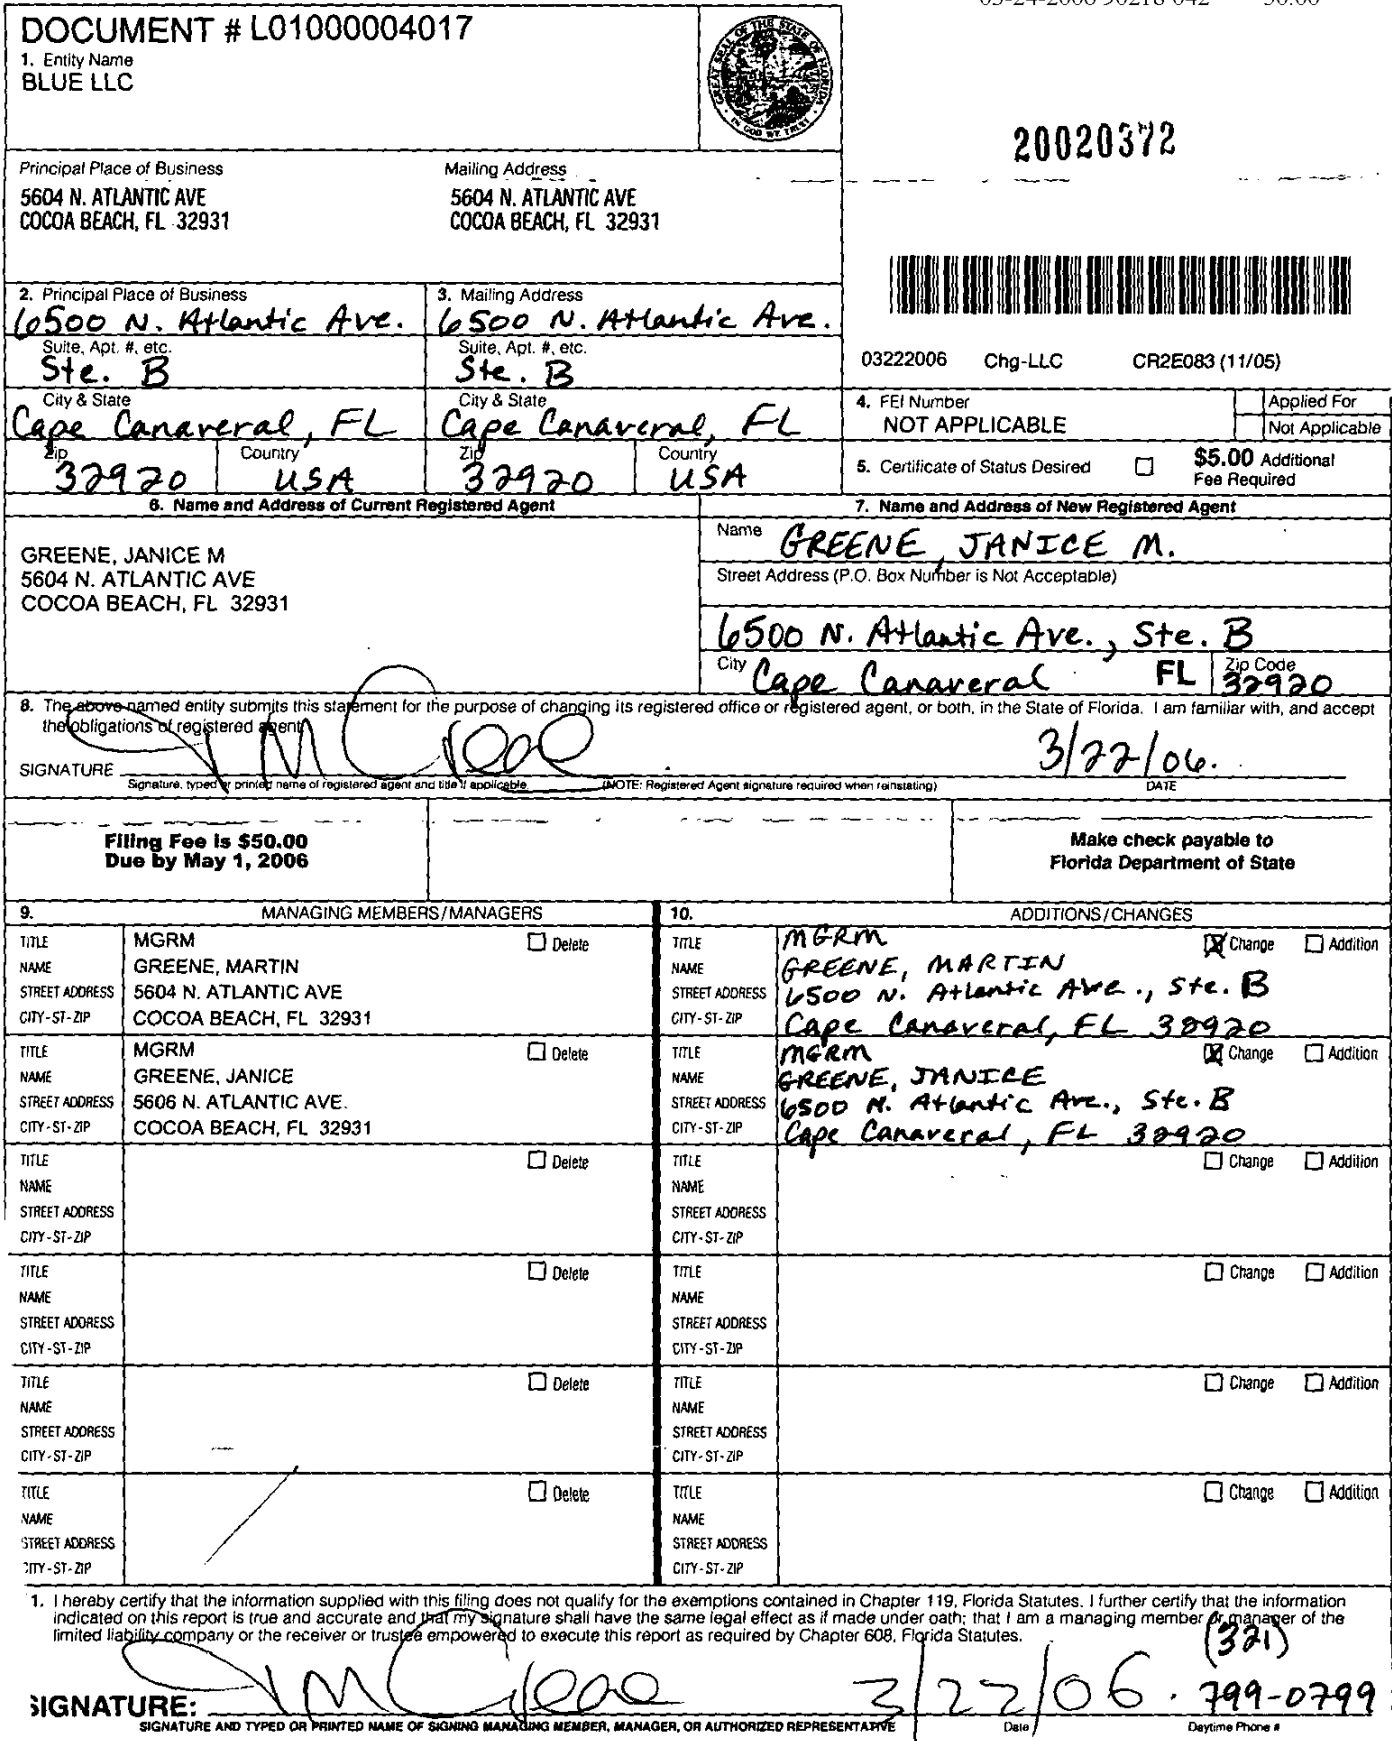 DOCUMENT # L01000004017
1. Entity Name
BLUE LLC
GREAT SEAL OF THE STATE OF FLORIDA
IN GOD WE TRUST
20020372
Principal Place of Business
5604 N. ATLANTIC AVE
COCOA BEACH, FL 32931
Mailing Address
5604 N. ATLANTIC AVE
COCOA BEACH, FL 32931
2. Principal Place of Business
6500 N. Atlantic Ave.
Suite, Apt. #, etc.
Ste. B
City & State
Cape Canaveral, FL
Zip
32920
Country
USA
3. Mailing Address
6500 N. Atlantic Ave.
Suite, Apt. #, etc.
Ste. B
City & State
Cape Canaveral, FL
Zip
32920
Country
USA
03222006 Chg-LLC CR2E083 (11/05)
4. FEI Number
NOT APPLICABLE
Applied For
Not Applicable
5. Certificate of Status Desired
$5.00 Additional
Fee Required
6. Name and Address of Current Registered Agent
GREENE, JANICE M
5604 N. ATLANTIC AVE
COCOA BEACH, FL 32931
7. Name and Address of New Registered Agent
Name GREENE, JANICE M.
Street Address (P.O. Box Number is Not Acceptable)
6500 N. Atlantic Ave., Ste. B
City Cape Canaveral FL Zip Code 32920
8. The above named entity submits this statement for the purpose of changing its registered office or registered agent, or both, in the State of Florida. I am familiar with, and accept
the obligations of registered agent.
SIGNATURE
3/22/06.
Signature, typed or printed name of registered agent and title if applicable. (NOTE: Registered Agent signature required when reinstating) DATE
Filing Fee is $50.00
Due by May 1, 2006
Make check payable to
Florida Department of State
9. MANAGING MEMBERS/MANAGERS
TITLE MGRM Delete
NAME GREENE, MARTIN
STREET ADDRESS 5604 N. ATLANTIC AVE
CITY-ST-ZIP COCOA BEACH, FL 32931
TITLE MGRM Delete
NAME GREENE, JANICE
STREET ADDRESS 5606 N. ATLANTIC AVE.
CITY-ST-ZIP COCOA BEACH, FL 32931
TITLE Delete
NAME
STREET ADDRESS
CITY-ST-ZIP
TITLE Delete
NAME
STREET ADDRESS
CITY-ST-ZIP
TITLE Delete
NAME
STREET ADDRESS
CITY-ST-ZIP
TITLE Delete
NAME
STREET ADDRESS
CITY-ST-ZIP
10. ADDITIONS/CHANGES
TITLE MGRM Change Addition
NAME GREENE, MARTIN
STREET ADDRESS 6500 N. Atlantic Ave., Ste. B
CITY-ST-ZIP Cape Canaveral, FL 32920
TITLE MGRM Change Addition
NAME GREENE, JANICE
STREET ADDRESS 6500 N. Atlantic Ave., Ste. B
CITY-ST-ZIP Cape Canaveral, FL 32920
TITLE Change Addition
NAME
STREET ADDRESS
CITY-ST-ZIP
TITLE Change Addition
NAME
STREET ADDRESS
CITY-ST-ZIP
TITLE Change Addition
NAME
STREET ADDRESS
CITY-ST-ZIP
TITLE Change Addition
NAME
STREET ADDRESS
CITY-ST-ZIP
1. I hereby certify that the information supplied with this filing does not qualify for the exemptions contained in Chapter 119, Florida Statutes. I further certify that the information
indicated on this report is true and accurate and that my signature shall have the same legal effect as if made under oath; that I am a managing member or manager of the
limited liability company or the receiver or trustee empowered to execute this report as required by Chapter 608, Florida Statutes.
(321)
SIGNATURE: 3/22/06. 799-0799
SIGNATURE AND TYPED OR PRINTED NAME OF SIGNING MANAGING MEMBER, MANAGER, OR AUTHORIZED REPRESENTATIVE Date Daytime Phone #